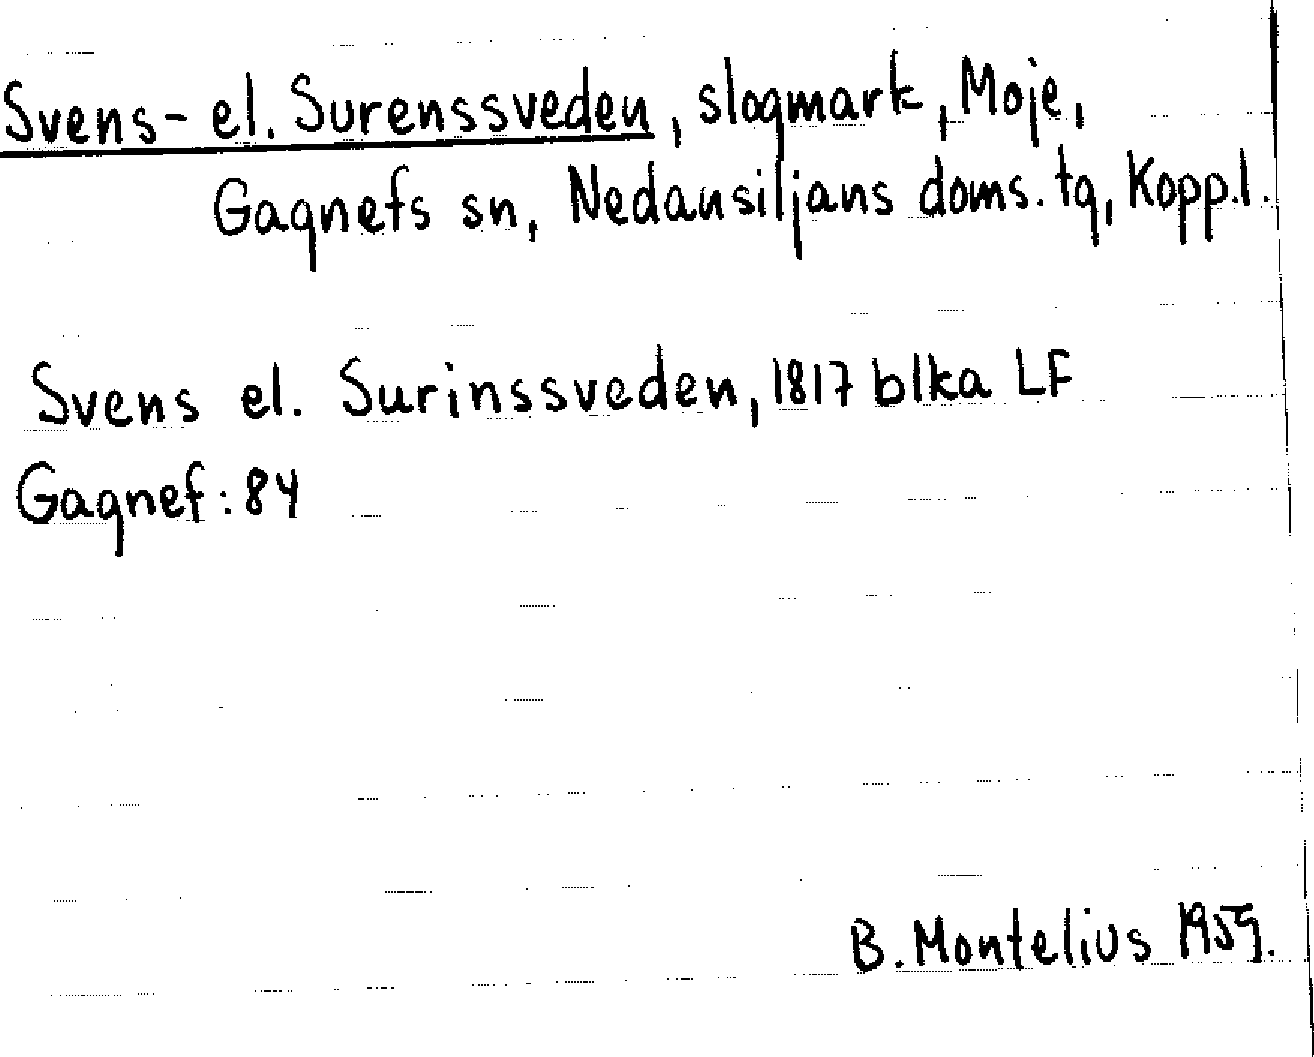 Svens- el. Surenssveden, slogmark, Moje,
Gagnefs sn, Nedansiljans doms. tg, Kopp.l.
Svens el. Surinssveden, 1817 blka LF
Gagnef: 84
B. Montelius 1959.